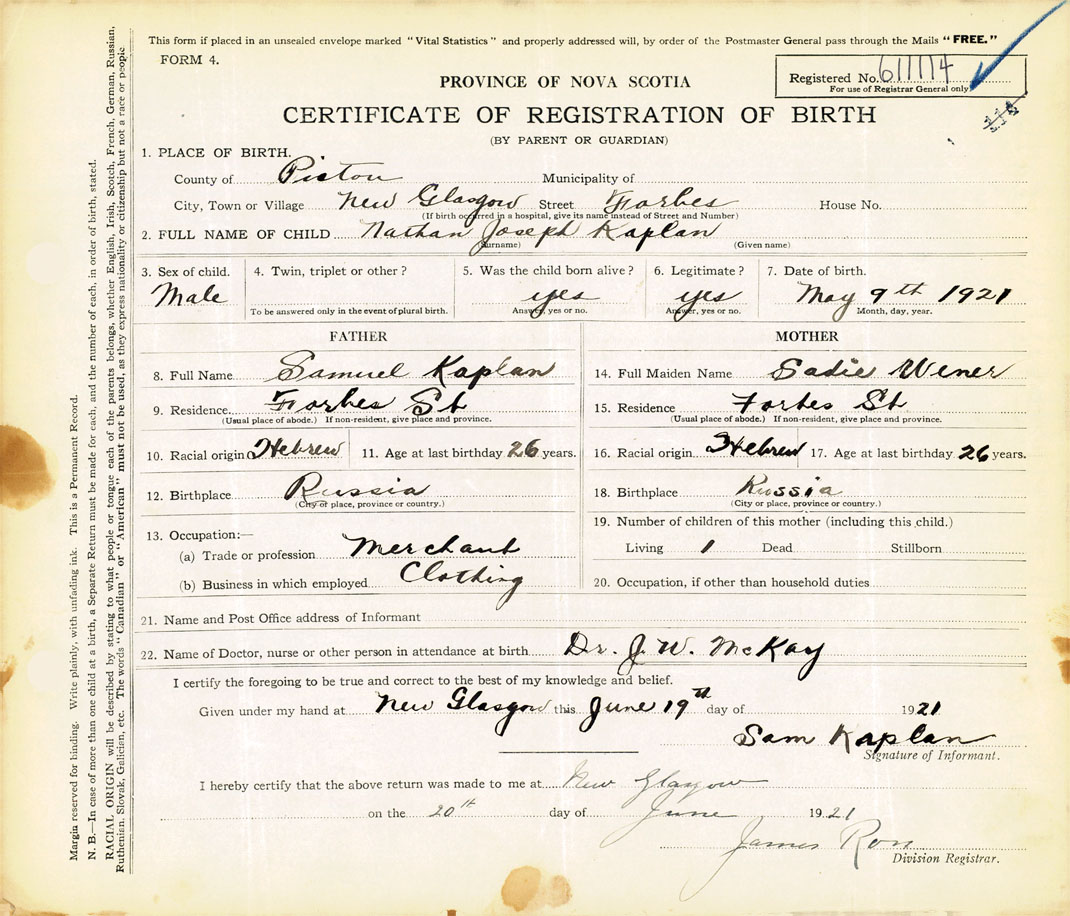 This form if placed in an unsealed envelope marked "Vital Statistics" and properly addressed will, by order of the Postmaster General pass through the Mails "FREE."
FORM 4.
Registered No.
For use of Registrar General only
PROVINCE OF NOVA SCOTIA
CERTIFICATE OF REGISTRATION OF BIRTH
(BY PARENT OR GUARDIAN)
1. PLACE OF BIRTH.
County of Pictou Municipality of
City, Town or Village New Glasgow Street Forbes House No.
(If birth occurred in a hospital, give its name instead of Street and Number)
2. FULL NAME OF CHILD Nathan Joseph Kaplan
(Surname) (Given name)
3. Sex of child. 4. Twin, triplet or other? 5. Was the child born alive? 6. Legitimate? 7. Date of birth.
Male yes yes May 9th 1921
To be answered only in the event of plural birth. Answer, yes or no. Answer, yes or no. Month, day, year.
FATHER MOTHER
8. Full Name Samuel Kaplan 14. Full Maiden Name Sadie Wener
9. Residence Forbes St 15. Residence Forbes St
(Usual place of abode.) If non-resident, give place and province. (Usual place of abode.) If non-resident, give place and province.
10. Racial origin Hebrew 11. Age at last birthday 26 years. 16. Racial origin Hebrew 17. Age at last birthday 26 years.
12. Birthplace Russia 18. Birthplace Russia
(City or place, province or country.) (City or place, province or country.)
13. Occupation:— 19. Number of children of this mother (including this child.)
(a) Trade or profession Merchant Living 1 Dead Stillborn
(b) Business in which employed Clothing 20. Occupation, if other than household duties
21. Name and Post Office address of Informant
22. Name of Doctor, nurse or other person in attendance at birth Dr. J. W. McKay
I certify the foregoing to be true and correct to the best of my knowledge and belief.
Given under my hand at New Glasgow this June 19th day of 1921
Sam Kaplan
Signature of Informant.
I hereby certify that the above return was made to me at New Glasgow
on the 20th day of June 1921
James
Division Registrar.
Margin reserved for binding. Write plainly, with unfading ink. This is a Permanent Record.
N. B.—In case of more than one child at a birth, a Separate Return must be made for each, and the number of each, in order of birth, stated.
RACIAL ORIGIN will be described by stating to what people or tongue each of the parents belongs, whether English, Irish, Scotch, French, German, Russian,
Ruthenian, Slovak, Galician, etc. The words "Canadian" or "American" must not be used, as they express nationality or citizenship but not a race or people